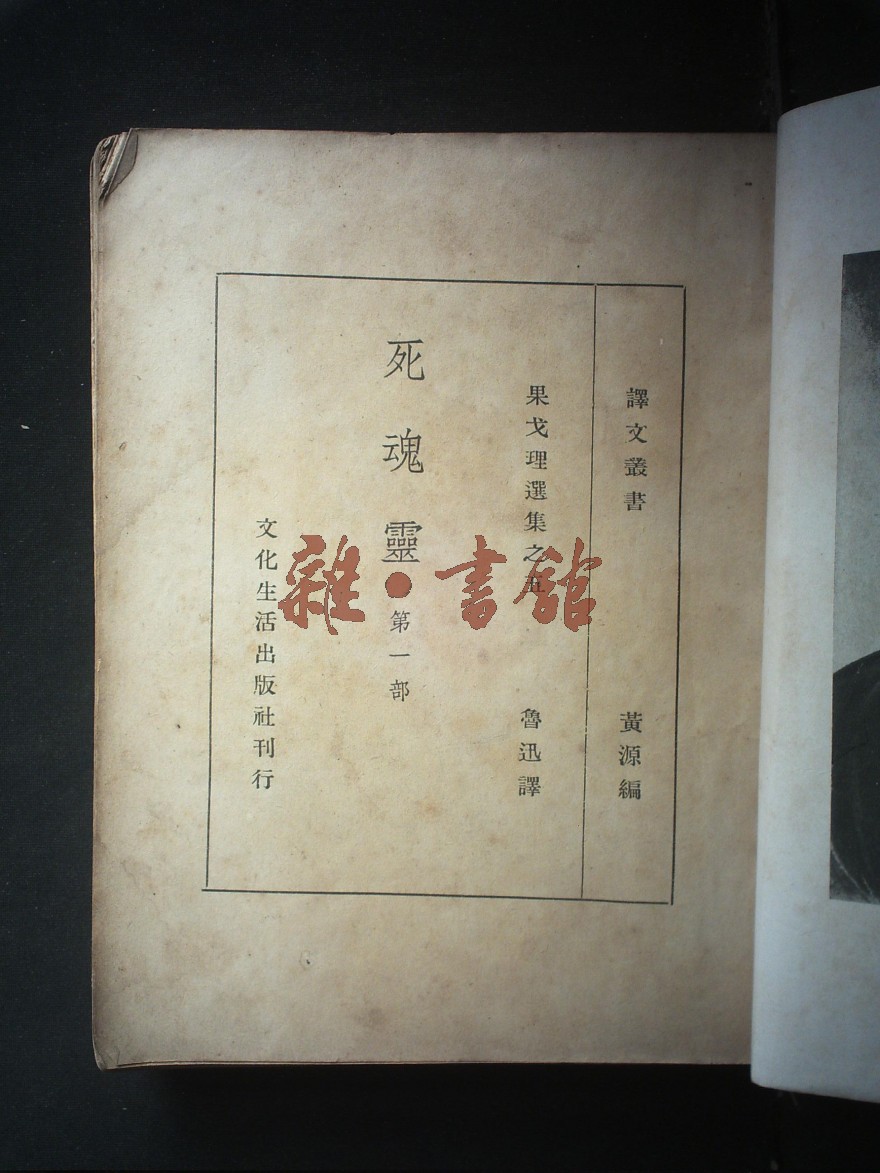 譯文叢書
黃源編
果戈理選集之五
魯迅譯
死魂靈
第一部
文化生活出版社刊行
雜·書館